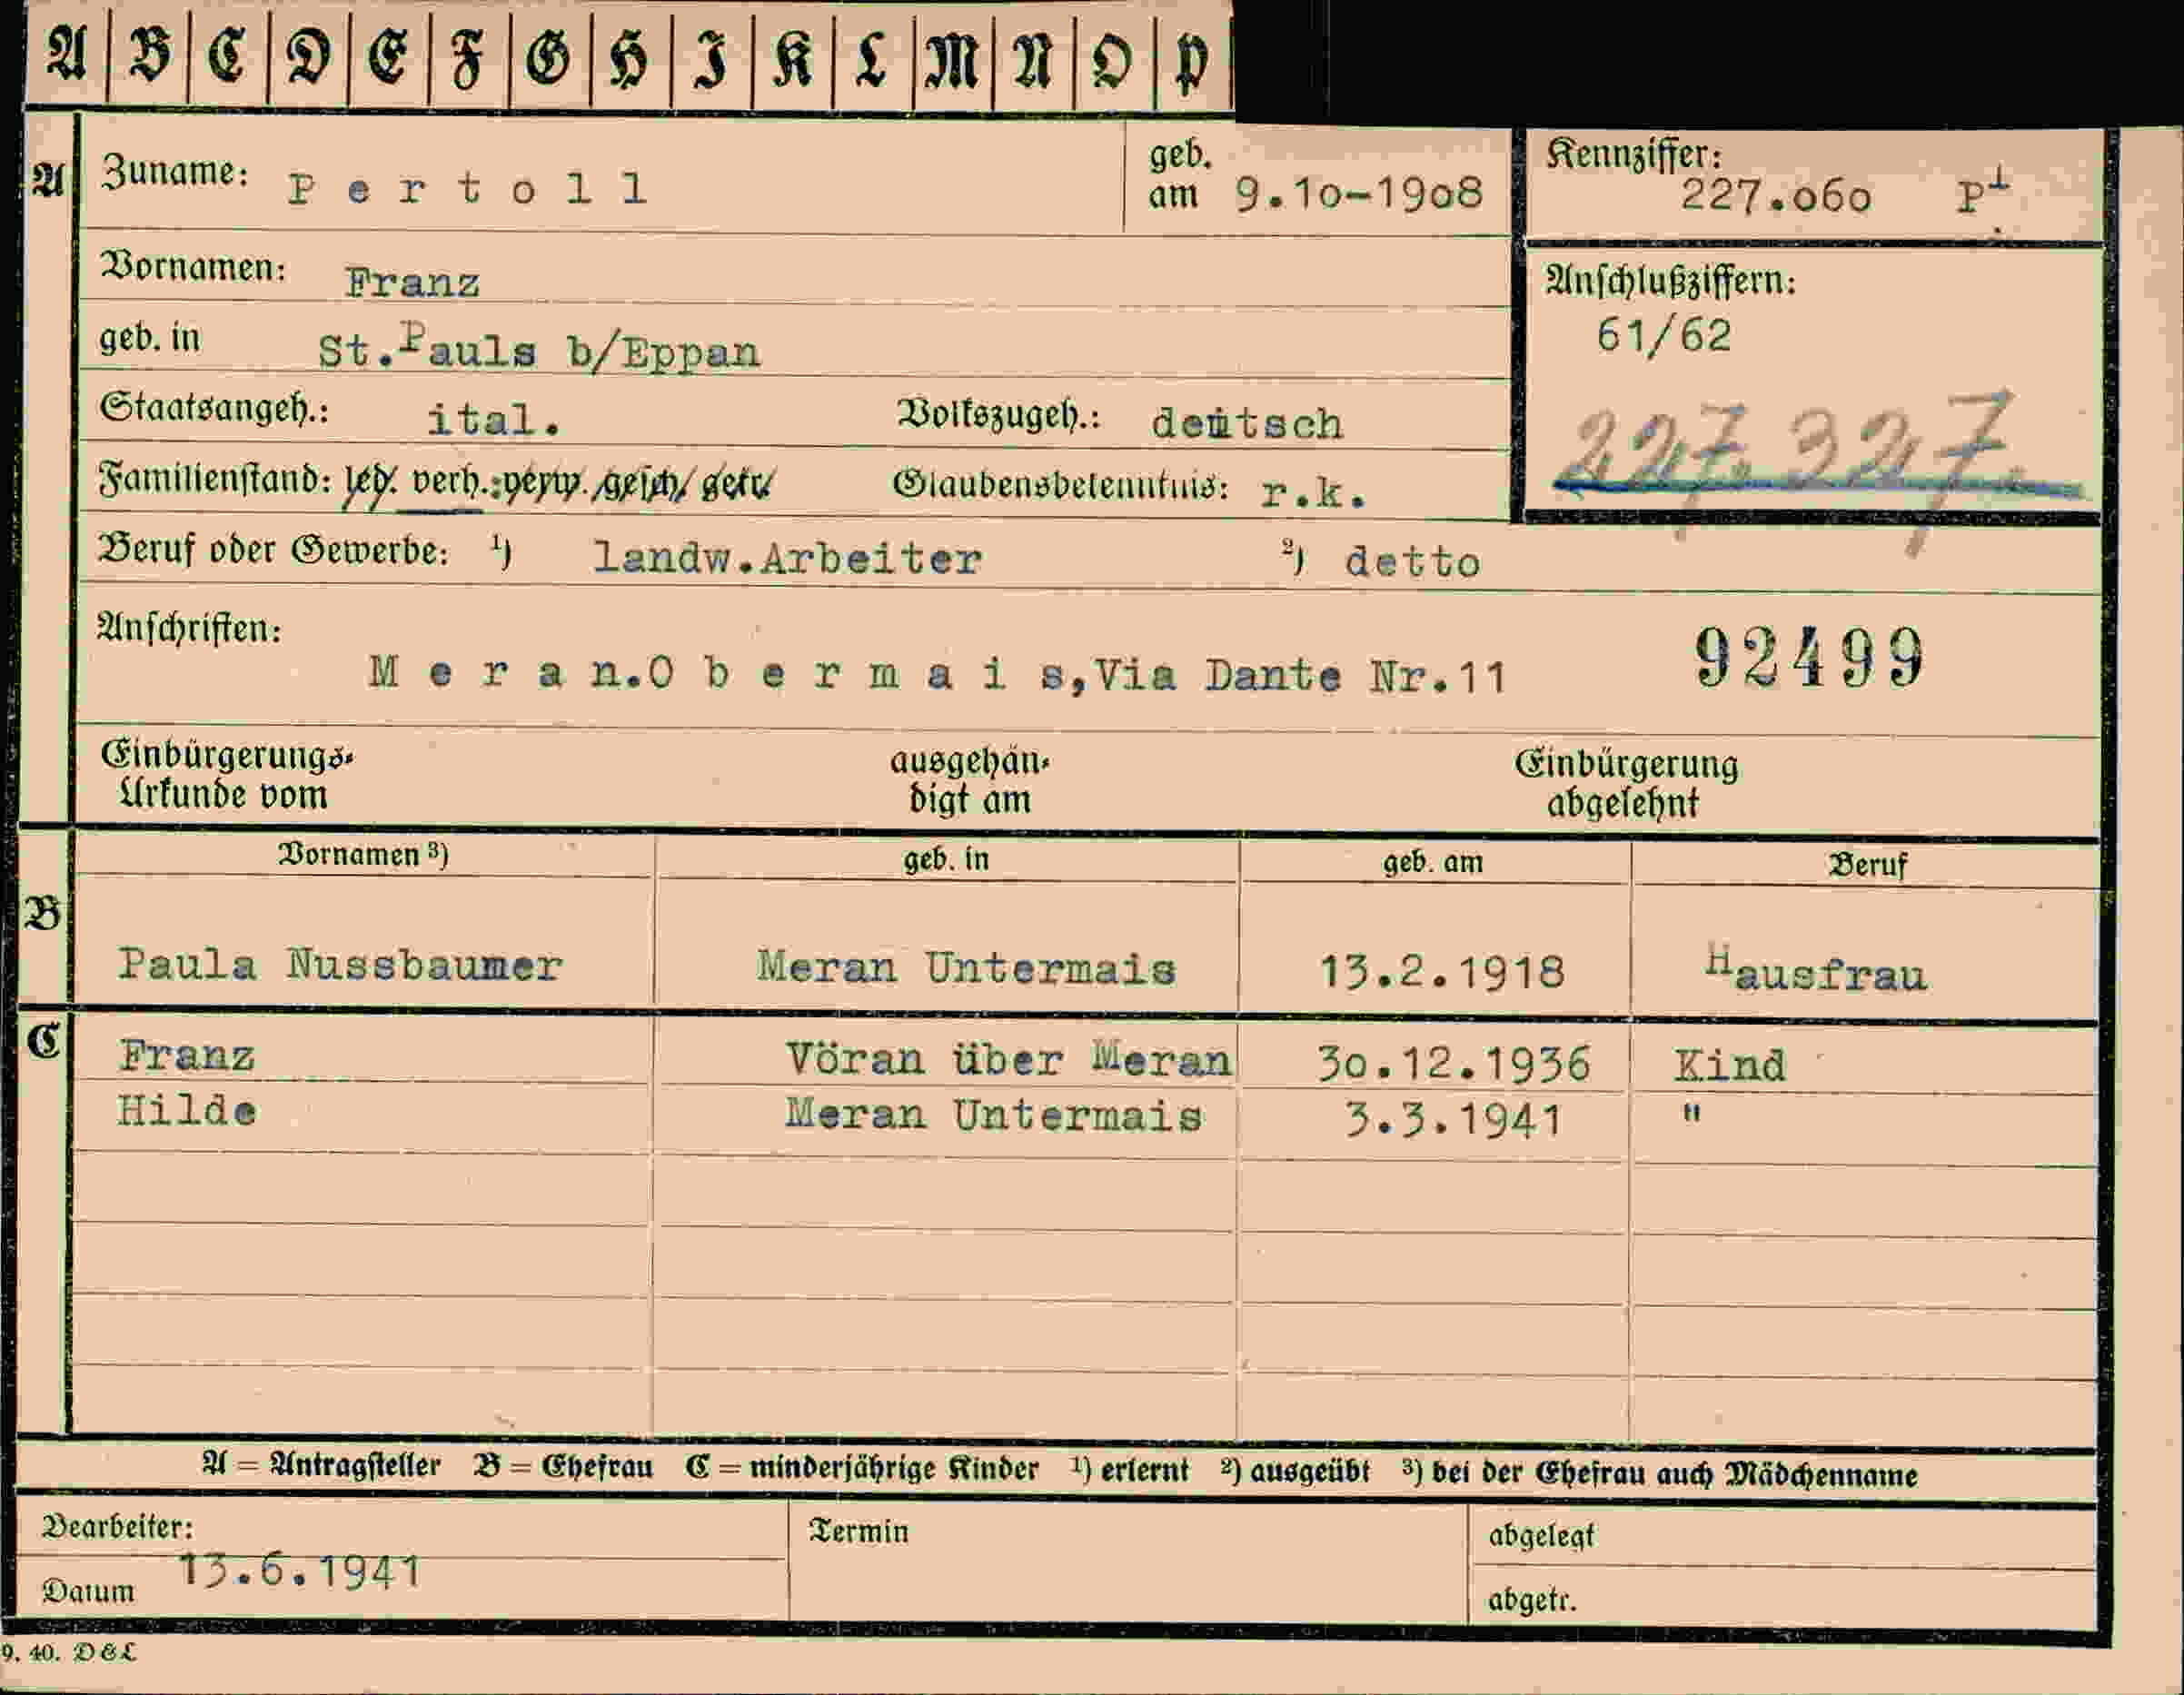 A B C D E F G H I K L M N O P
A Zuname: Pertoll geb. am 9.10-1908
Kennziffer: 227.060 P
Vornamen: Franz
Anschlußziffern:
61/62
227.327.
geb. in St.Pauls b/Eppan
Staatsangeh.: ital. Volkszugeh.: deutsch
Familienstand: led. verh. verw. gesch. getr. Glaubensbekenntnis: r.k.
Beruf oder Gewerbe: 1) landw.Arbeiter 2) detto
Anschriften:
Meran.Obermais,Via Dante Nr.11 92499
Einbürgerungs- ausgehän- Einbürgerung
Urkunde vom digt am abgelehnt
B Vornamen 3) geb. in geb. am Beruf
Paula Nussbaumer Meran Untermais 13.2.1918 Hausfrau
C Franz Vöran über Meran 30.12.1936 Kind
Hilde Meran Untermais 3.3.1941 "
A = Antragsteller B = Ehefrau C = minderjährige Kinder 1) erlernt 2) ausgeübt 3) bei der Ehefrau auch Mädchenname
Bearbeiter: Termin abgelegt
13.6.1941
Datum abgetr.
9. 40. D&L